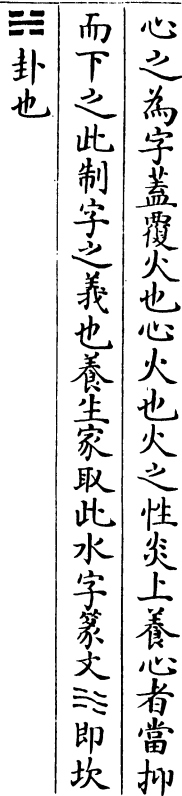 心之為字蓋覆火也心火也火之性炎上養心者當抑
而下之此制字之義也養生家取此水字篆文即坎
☵卦也